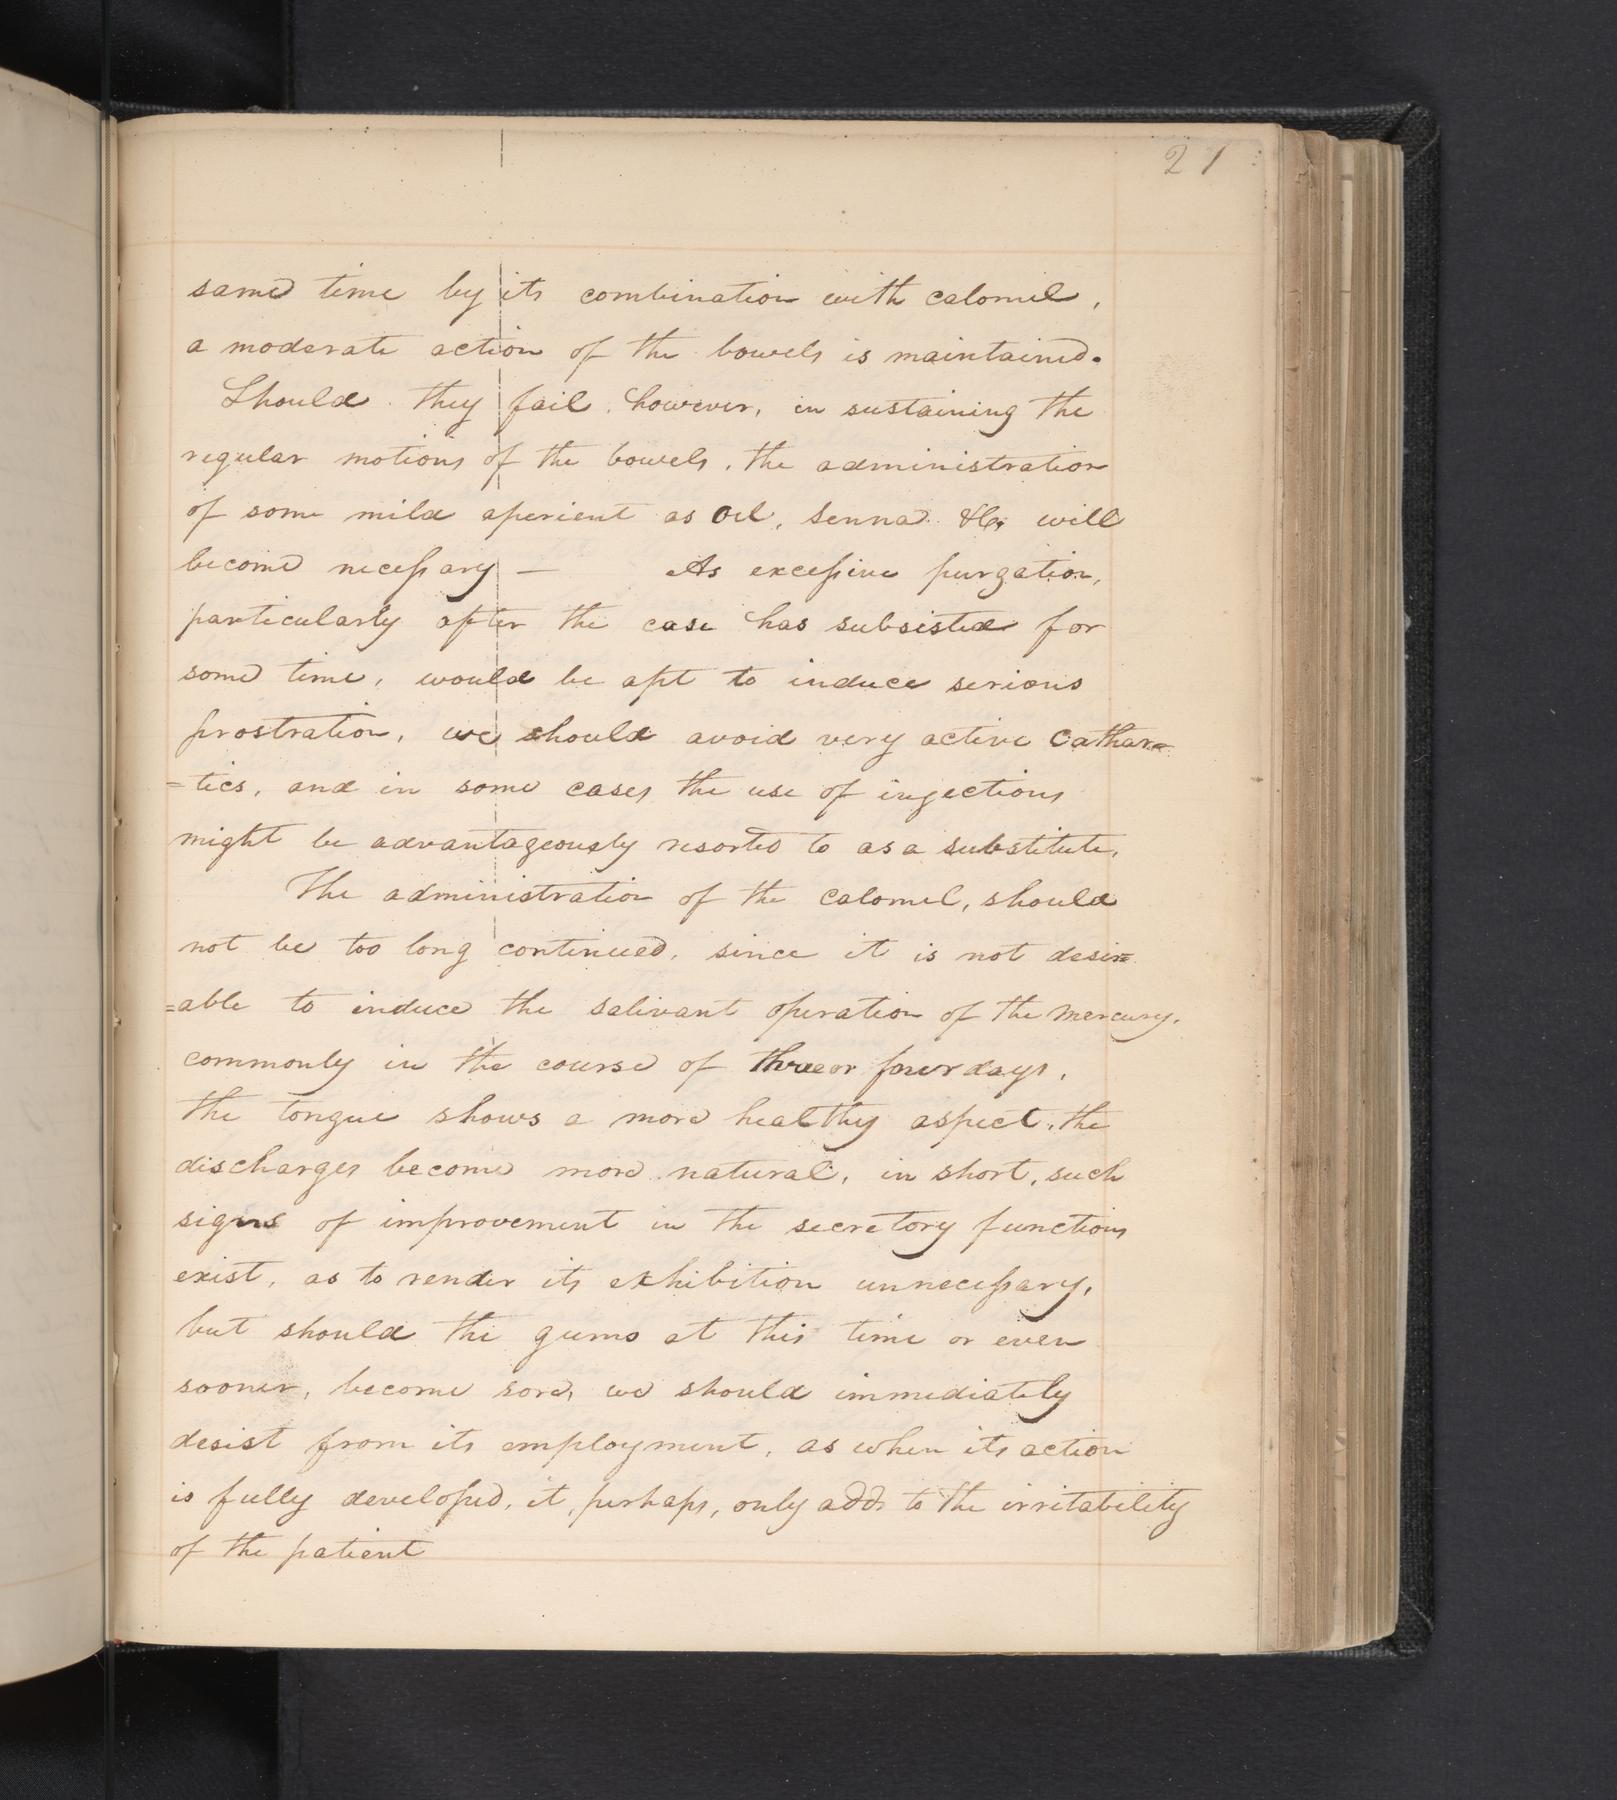 21
same time by its combination with calomel,
a moderate action of the bowels is maintained.
Should they fail, however, in sustaining the
regular motions of the bowels, the administration
of some mild aperient as Oil, Senna &c, will
become necessary — As excessive purgation,
particularly after the case has subsisted for
some time, would be apt to induce serious
prostration, we should avoid very active Cathar=
=tics, and in some cases the use of injections
might be advantageously resorted to as a substitute.
The administration of the Calomel, should
not be too long continued, since it is not desir=
=able to induce the salivant operation of the mercury.
commonly in the course of three or four days,
the tongue shows a more healthy aspect, the
discharges become more natural, in short, such
signs of improvement in the secretory functions
exist, as to render its exhibition unnecessary,
but should the gums at this time or even
sooner, become sore, we should immediately
desist from its employment, as when its action
is fully developed, it, perhaps, only adds to the irritability
of the patient